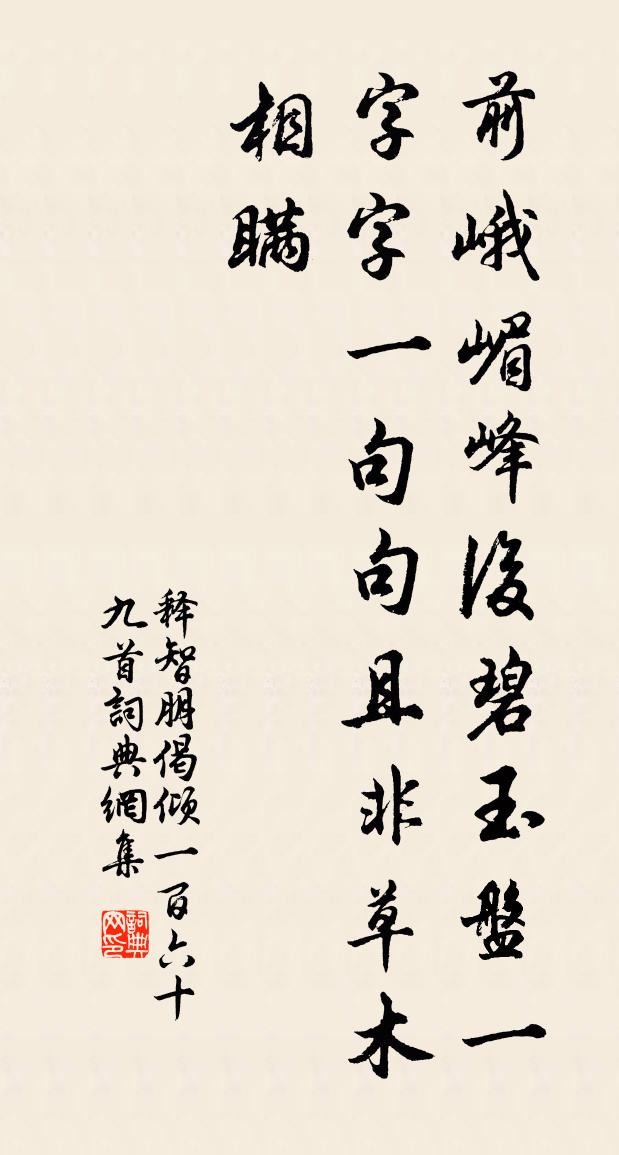 前峨嵋峰後碧玉盤一
字字一句句且非草木
相瞞
释智朋偈倾一百六十
九首詞典網集
詞典网印